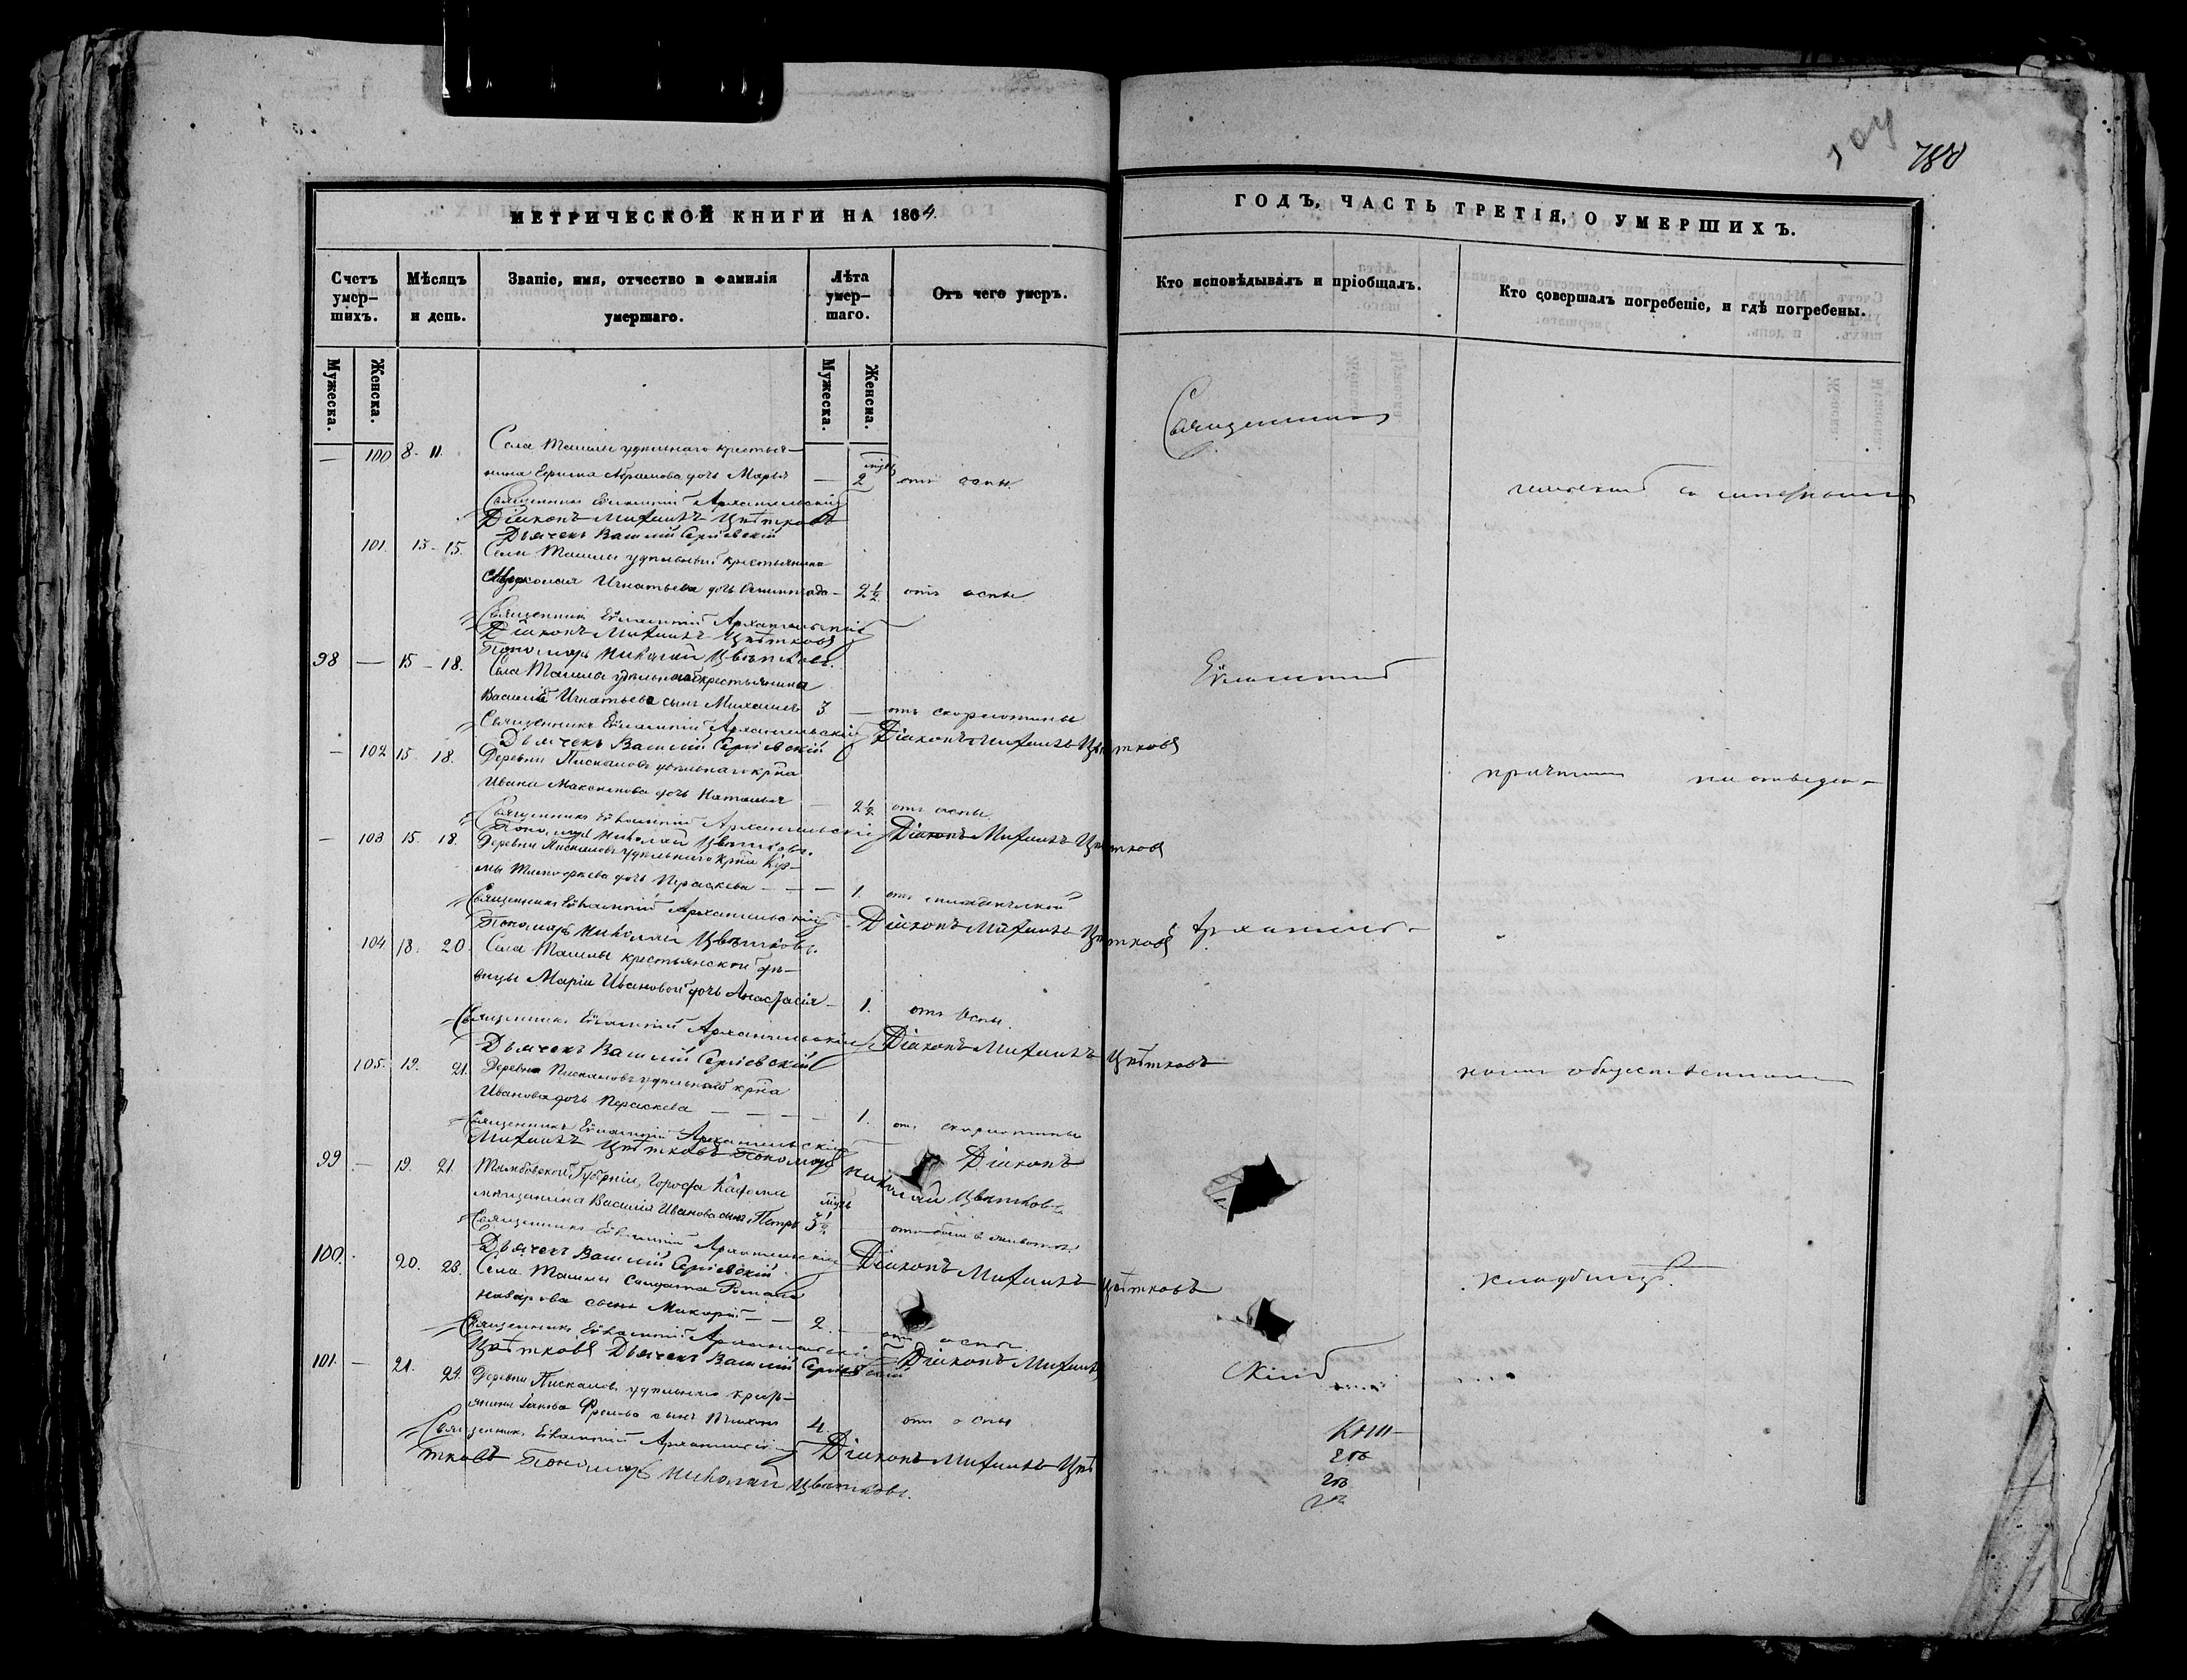 104
780
МЕТРИЧЕСКОЙ КНИГИ НА 1864.
ГОДЪ, ЧАСТЬ ТРЕТІЯ, О УМЕРШИХЪ.
Счетъ умер-шихъ.
Мѣсяцъ и день.
Званіе, имя, отчество и фамилія умершаго.
Лѣта умер-шаго.
Отъ чего умеръ.
Кто исповѣдывалъ и пріобщалъ.
Кто совершалъ погребеніе, и гдѣ погребены.
Мужеска.
Женска.
Мужеска.
Женска.
— 100 8 - 11. Села Ташлы удѣльнаго крестья-
нина Ефима Абрамова дочь Марья — 2 отъ оспы.
Священникъ Евлампій Архангельскій
Діаконъ Михаилъ Цвѣтковъ
Дьячекъ Василій Сергіевскій
101. 13 - 15. Села Ташлы удѣльнаго крестьянина
Игнатьева дочь 2½ отъ оспы
Священникъ Евлампій Архангельскій
Діаконъ Михаилъ Цвѣтковъ
Пономарь Николай Цвѣтковъ.
98 — 15 - 18. Села Ташлы удѣльнаго крестьянина
Василія Игнатьева сынъ Михаилъ 3 — отъ скарлатины
Священникъ Евлампій Архангельскій Діаконъ Михаилъ Цвѣтковъ
Дьячекъ Василій Сергіевскій
— 102 15 18. Деревни Пискаловъ удѣльнаго кр͠на
Ивана Максимова дочь Наталья — 2½ отъ оспы
Священникъ Евлампій Архангельскій Діаконъ Михаилъ Цвѣтковъ
Пономарь Николай Цвѣтковъ.
— 103 15 18. Деревни Пискаловъ удѣльнаго кр͠на Кузь-
мы Тимофеева дочь Параскева — — — 1. отъ
Священникъ Евлампій Архангельскій Діаконъ Михаилъ Цвѣтковъ
Пономарь Николай Цвѣтковъ.
104 18. 20. Села Ташлы крестьянской дѣ-
вицы Маріи Ивановой дочь Анастасія — 1. отъ Оспы.
Священникъ Евлампій Архангельскій Діаконъ Михаилъ Цвѣтковъ
Дьячекъ Василій Сергіевскій
105. 19. 21. Деревни Пискаловъ удѣльнаго кр͠на
Иванова дочь Параскева — — — — 1. отъ скарлатины
Священникъ Евлампій Архангельскій Діаконъ
Михаилъ Цвѣтковъ Пономарь Николай Цвѣтковъ
99 — 19. 21. Тамбовской Губерніи, Города Кадома
мѣщанина Василія Иванова сынъ Петръ 3½ отъ боли въ животѣ
Священникъ Евлампій Архангельскій Діаконъ Михаилъ Цвѣтковъ
Дьячекъ Василій Сергіевскій
100. 20. 23. Села Ташлы Солдата Романа
Назарова сынъ Макарій — — 2. — отъ оспы.
Священникъ Евлампій Архангельскій Діаконъ Михаилъ
Цвѣтковъ Дьячекъ Василій Сергіевскій
101. — 21. 24. Деревни Пискаловъ удѣльнаго кресть-
янина сынъ 4 отъ оспы
Священникъ Евлампій Архангельскій Діаконъ Михаилъ Цвѣ
тковъ Пономарь Николай Цвѣтковъ.
Священникъ
Евлампій
Архангель-
скій
причтомъ на отведен-
номъ общественномъ
кладбищѣ.